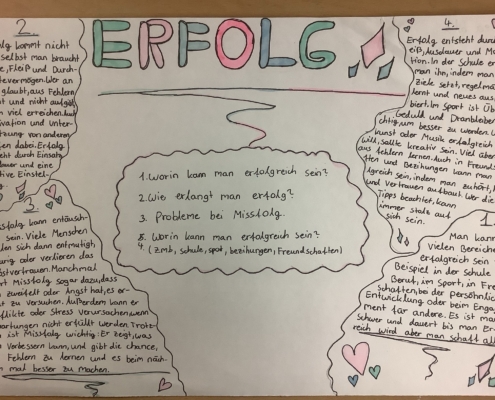 ERFOLG
2.
lg kommt nicht
selbst man braucht
e, Fleiß und Durch-
tevermögen. Wer an
glaubt, aus Fehlern
t und nicht aufgibt
n viel erreichen. Auch
ivation und Unter-
tzung von anderen
en dabei. Erfolg
eht durch Einsatz
auer und eine
tive Einstel-
3
issfolg kann entäusch-
sein. Viele Menschen
len sich dann entmutigt,
ung oder verlieren das
bstvertrauen. Manchmal
rt Missfolg sogar dazu, dass
n zweifelt oder Angst hat, es er-
t zu versuchen. Außerdem kann er
flikte oder Stress verursachen wenn
artungen nicht erfüllt werden. Trotz-
ist Missfolg wichtig: Er zeigt, was
verbessern kann, und gibt die chance,
Fehlern zu lernen und es beim näch-
mal besser zu machen.
1. Worin kann man erfolgreich sein?
2. Wie erlangt man erfolg?
3. Probleme bei Missfolg.
4. Worin kann man erfolgreich sein?
(z.mb, schule, spot, bezihungen, Freundschaften)
4.
Erfolg entsteht durch
eiß, Ausdauer und Mo
tion. In der Schule er
man ihn, indem man
ziele setzt, regelmä
lernt und neues aus
biert. Im sport ist Üb
Geduld und Dranbleiben
chtig, um besser zu werden.
kunst oder Musik erfolgreich
will, sollte kreativ sein. Viel aber
aus fehlern lernen. Auch in Freunds
ften und Beziehungen kann man
lgreich sein, indem man zuhört,
und Vertrauen aufbaut. Wer die
Tipps beachtet, kann
immer stolz auf
sich sein.
1.
Man kann
vielen Bereichen
erfolgreich sein
Beispiel in der Schule
Beruf, im Sport, in Fr
Schaften, bei der persönlic
Entwicklung oder beim Engag
ment für andere. Es ist man
schwer und dauert bis man Er
reich wird aber man schaft all